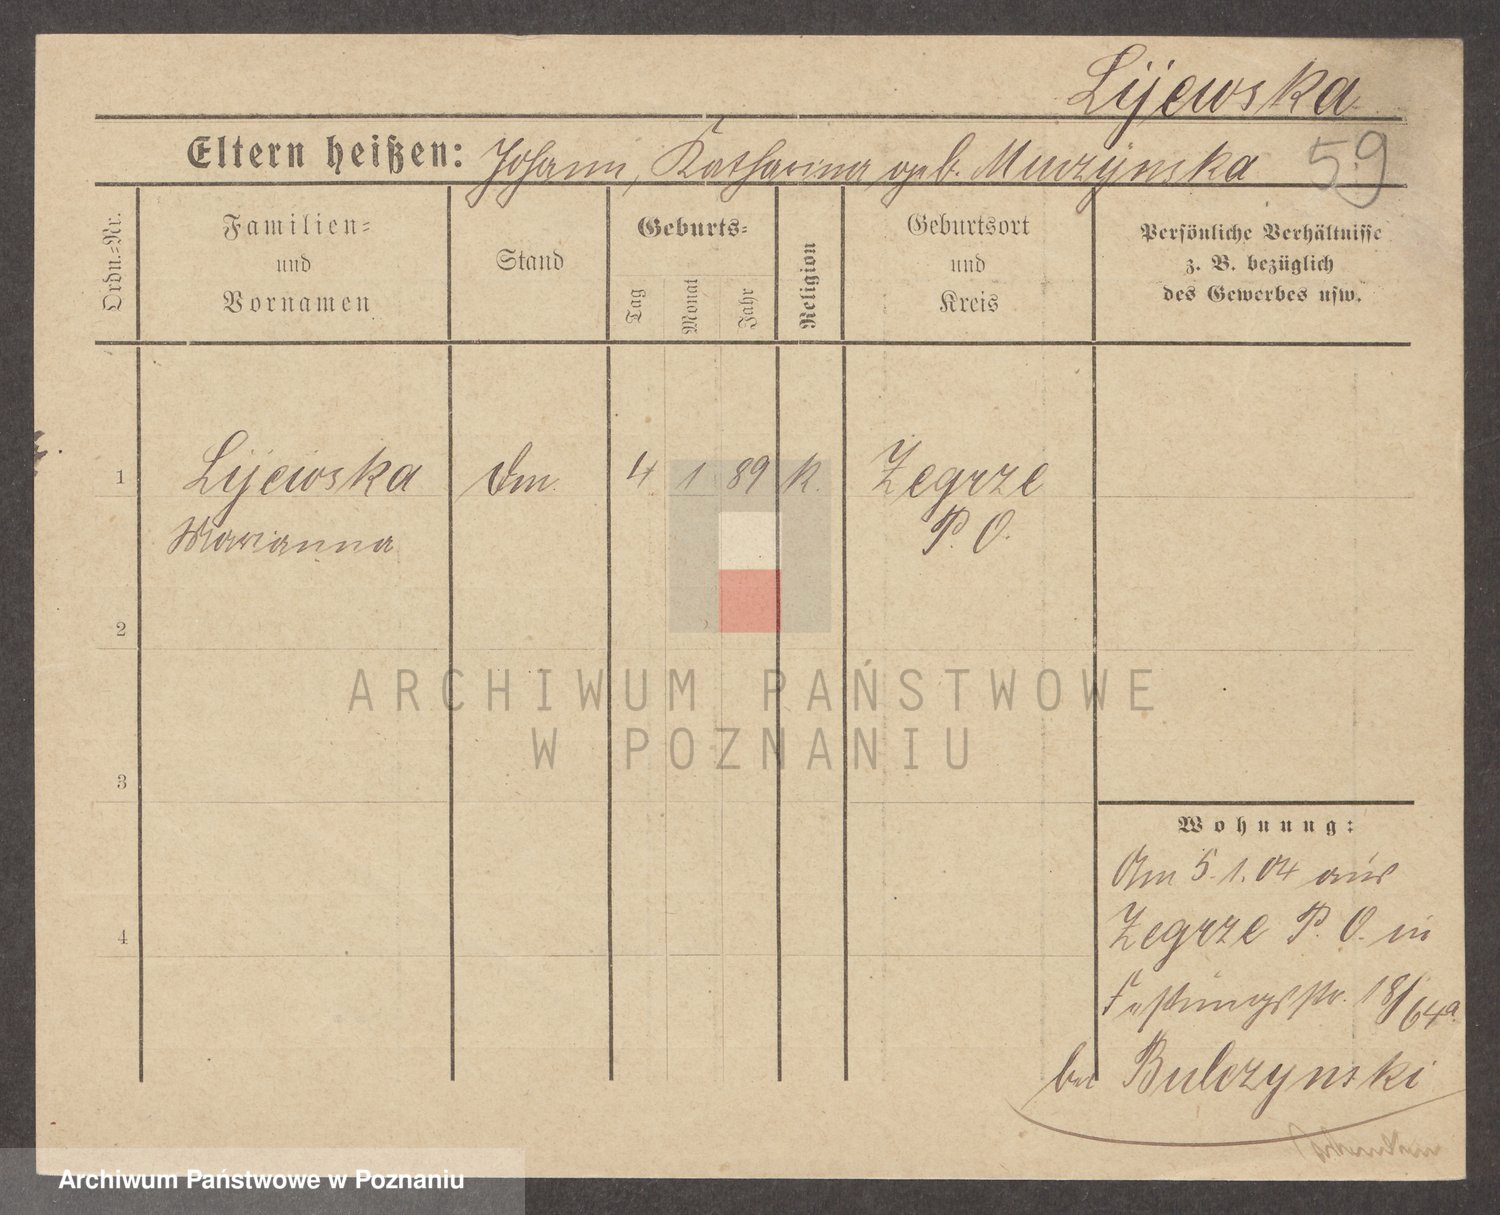 Lijewska
Eltern heißen: Johann, Katharina geb. Murzynska
59
Ordn.-Nr.
Familien-
und
Vornamen
Stand
Geburts-
Tag
Monat
Jahr
Religion
Geburtsort
und
Kreis
Persönliche Verhältnisse
z. B. bezüglich
des Gewerbes usw.
1 Lijewska 4 1 89 k. Zegrze
Marianna P. O.
2
3
4
Wohnung:
Am 5.1.04 aus
Zegrze P. O. in
Festungsstr. 18/64a
bei Bulczynski
ARCHIWUM PAŃSTWOWE
W POZNANIU
Archiwum Państwowe w Poznaniu